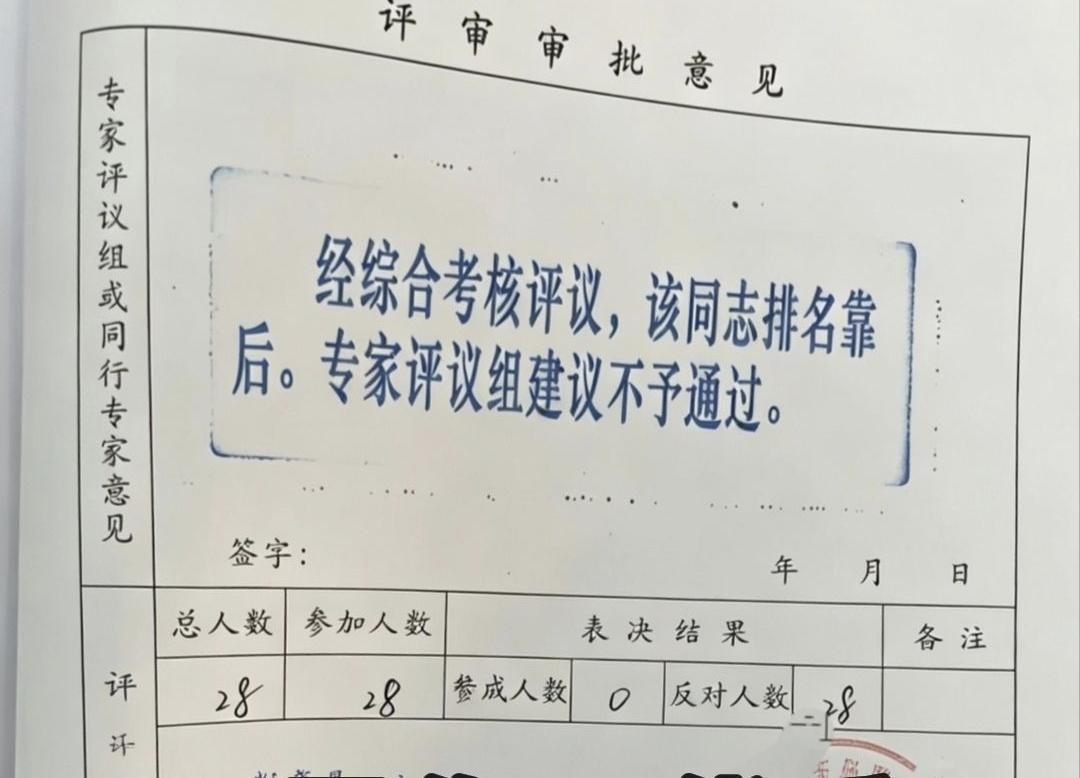 评审审批意见
专家评议组或同行专家意见
经综合考核评议，该同志排名靠
后。专家评议组建议不予通过。
签字： 年 月 日
总人数 参加人数 表决结果 备注
评
28 28 参成人数 0 反对人数 28